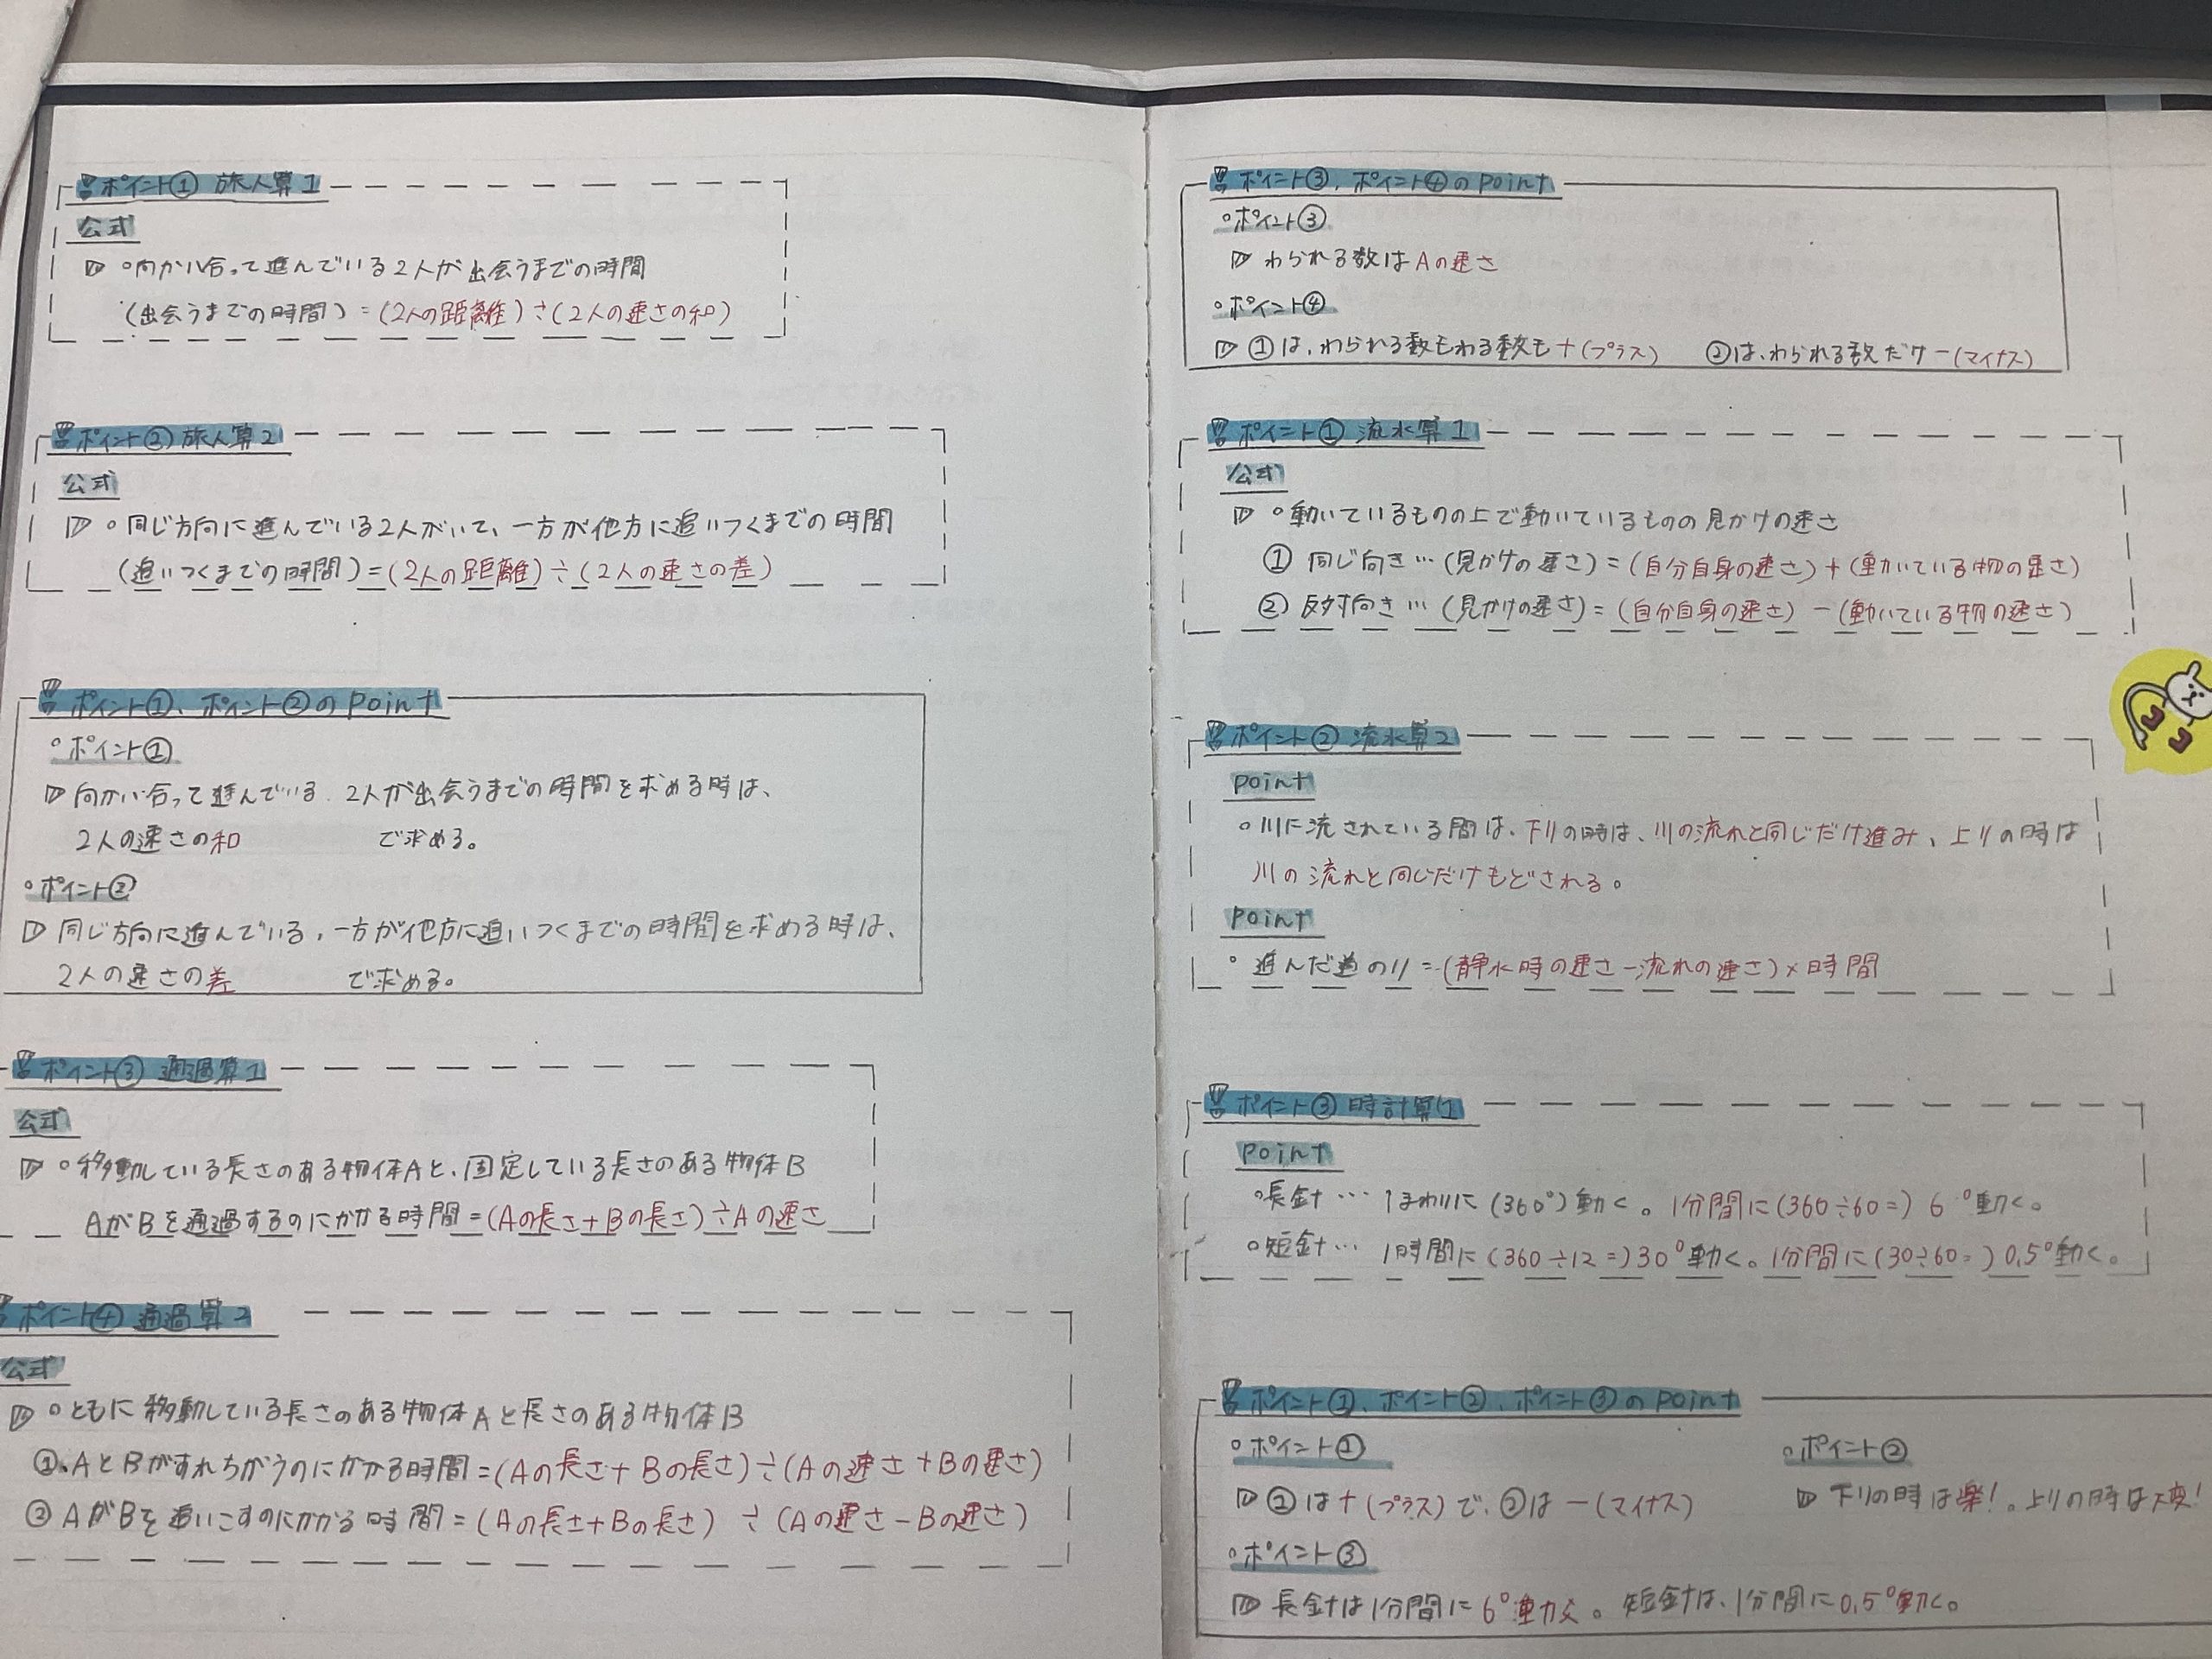 ポイント① 旅人算1
公式
◦向かい合って進んでいる2人が出会うまでの時間
(出会うまでの時間)=(2人の距離)÷(2人の速さの和)
ポイント② 旅人算2
公式
◦同じ方向に進んでいる2人がいて、一方が他方に追いつくまでの時間
(追いつくまでの時間)=(2人の距離)÷(2人の速さの差)
ポイント①、ポイント②のpoint
◦ポイント①
向かい合って進んでいる、2人が出会うまでの時間を求める時は、
2人の速さの和 で求める。
◦ポイント②
同じ方向に進んでいる、一方が他方に追いつくまでの時間を求める時は、
2人の速さの差 で求める。
ポイント③ 通過算1
公式
◦移動している長さのある物体Aと、固定している長さのある物体B
AがBを通過するのにかかる時間=(Aの長さ+Bの長さ)÷Aの速さ
ポイント④ 通過算2
公式
◦ともに移動している長さのある物体Aと長さのある物体B
①、AとBがすれちがうのにかかる時間=(Aの長さ+Bの長さ)÷(Aの速さ+Bの速さ)
② AがBを追いこすのにかかる時間=(Aの長さ+Bの長さ) ÷ (Aの速さ-Bの速さ)
ポイント③、ポイント④のpoint
◦ポイント③
わられる数はAの速さ
◦ポイント④
①は、わられる数もわる数も+(プラス) ②は、わられる数だけ-(マイナス)
ポイント① 流水算1
公式
◦動いているものの上で動いているものの見かけの速さ
① 同じ向き…(見かけの速さ)=(自分自身の速さ)+(動いている物の速さ)
② 反対向き…(見かけの速さ)=(自分自身の速さ)-(動いている物の速さ)
ポイント② 流水算2
point
◦川に流されている間は、下りの時は、川の流れと同じだけ進み、上りの時は
川の流れと同じだけもどされる。
point
◦進んだ道のり=(静水時の速さ-流れの速さ)×時間
ポイント③ 時計算1
point
◦長針… 1まわりに(360°)動く。1分間に(360÷60=)6°動く。
◦短針… 1時間に(360÷12=)30°動く。1分間に(30÷60=)0.5°動く。
ポイント①、ポイント②、ポイント③のpoint
◦ポイント①
②は+(プラス)で、②は-(マイナス)
◦ポイント②
下りの時は楽!。上りの時は大変!
◦ポイント③
長針は1分間に6°動く。短針は、1分間に0.5°動く。